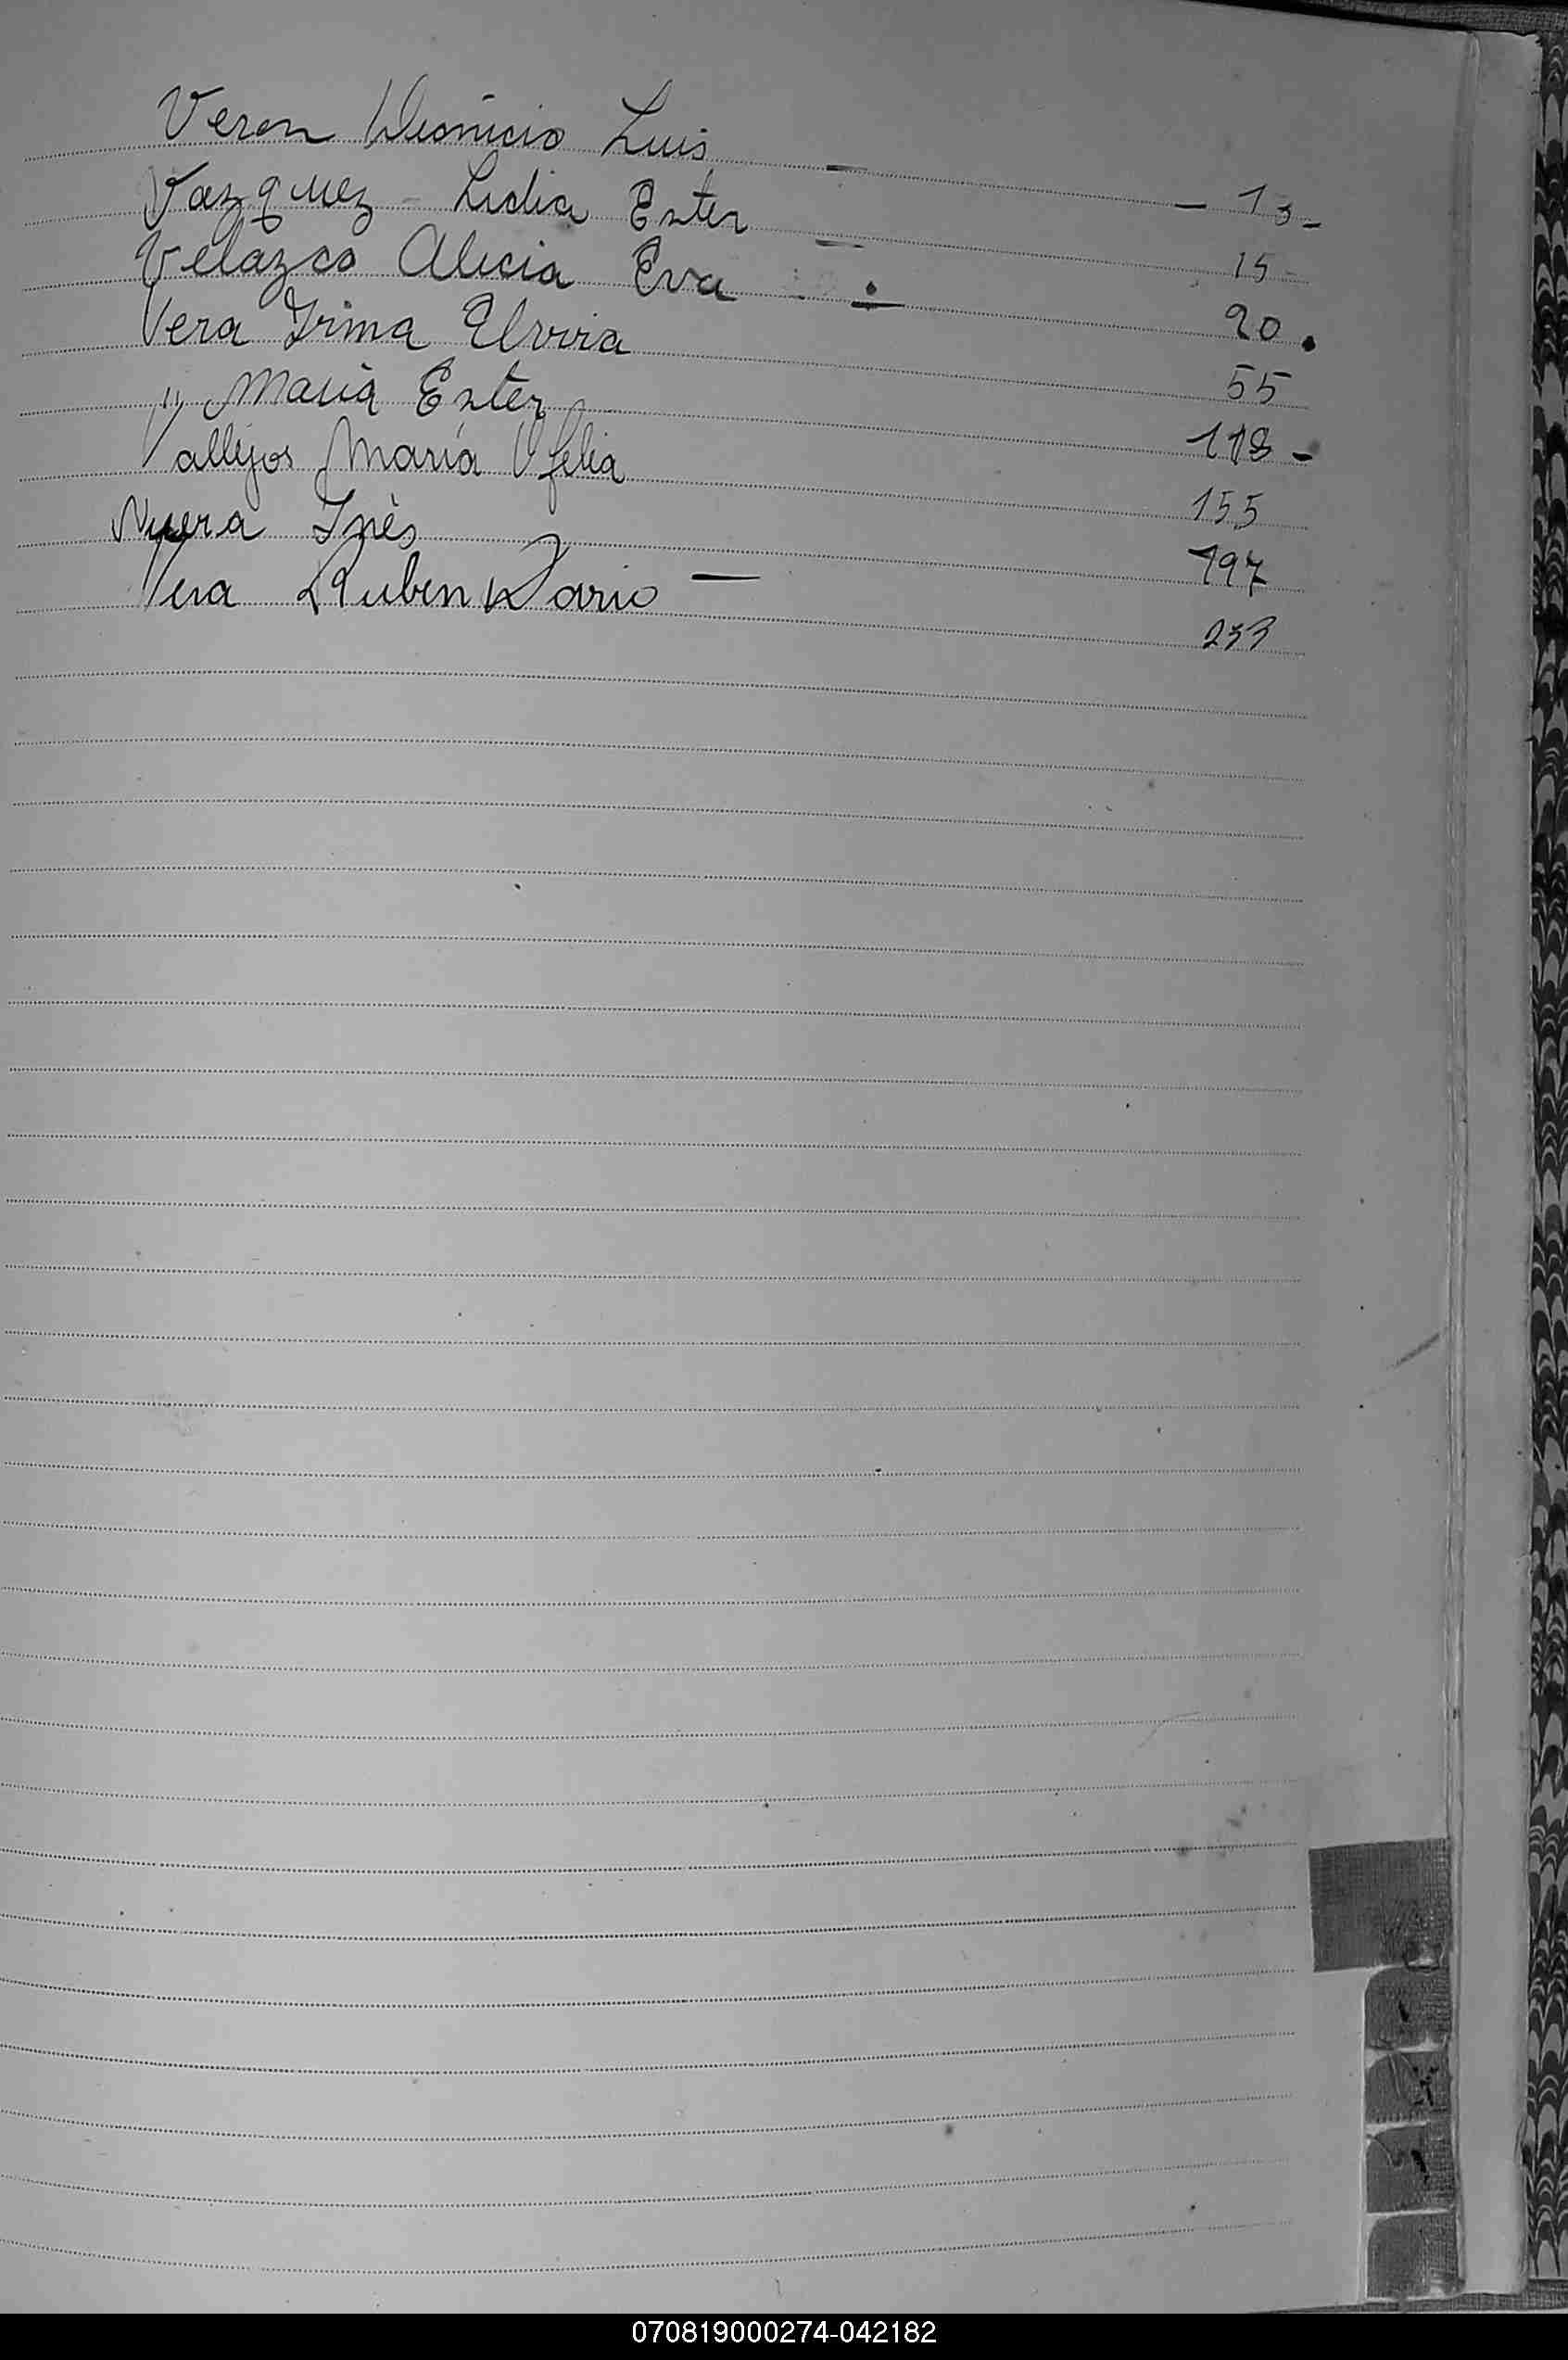 Veron Dionicio Luis — — 13 -
Vazquez - Lidia Ester — 15 -
Velazco Alicia Eva — 20 .
Vera Irma Elvira 55
" Maria Ester 118 -
Vallejos María Ofelia 155
Inés 197
Vera Ruben Dario — 233
070819000274-042182